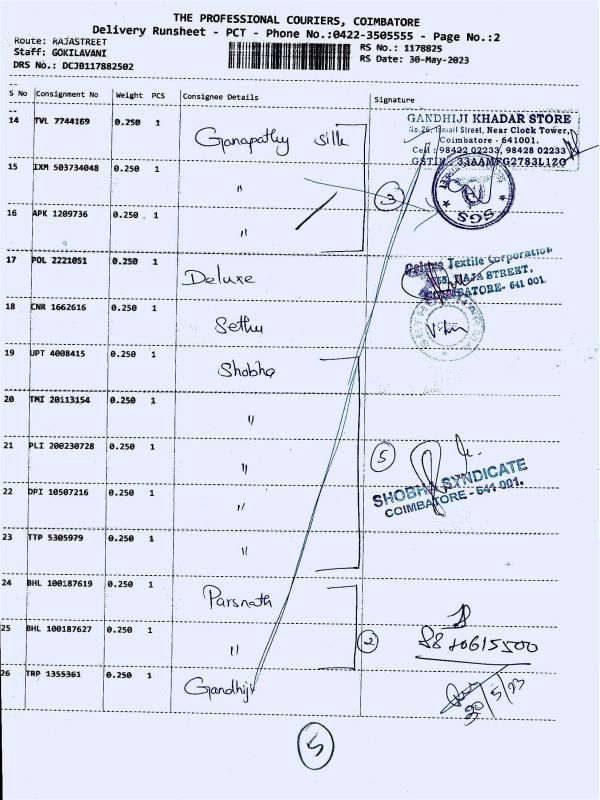 THE PROFESSIONAL COURIERS, COIMBATORE
Delivery Runsheet - PCT - Phone No.:0422-3505555 - Page No.:2
Route: RAJASTREET
Staff: GOKILAVANI
DRS No.: DCJB117882502
RS No.: 1178825
RS Date: 30-May-2023
S No Consignment No Weight PCS Consignee Details Signature
14 TVL 7744169 0.250 1 Ganapathy Silk
GANDHIJI KHADAR STORE
Street, Near Clock Tower,
Coimbatore - 641001.
Cell : 98422 02233, 98428 02233
GSTIN: 33AAMFG2783L1ZO
15 IXM 503734048 0.250 1 "
3
SGS
16 APK 1209736 0.250 1 "
17 POL 2221051 0.250 1 Deluxe
Deluxe Textile Corporation
RAJA STREET,
COIMBATORE- 641 001.
18 CNR 1662616 0.250 1 Sethu
19 UPT 4008415 0.250 1 Shobha
20 TMI 20113154 0.250 1 "
21 PLI 200230728 0.250 1 "
5
SHOBHA SYNDICATE
COIMBATORE - 641 001.
22 DPI 10507216 0.250 1 "
23 TTP 5305979 0.250 1 "
24 BHL 100187619 0.250 1 Parsnath
25 BHL 100187627 0.250 1 "
2
26 TRP 1355361 0.250 1 Gandhiji
30/5/23
5